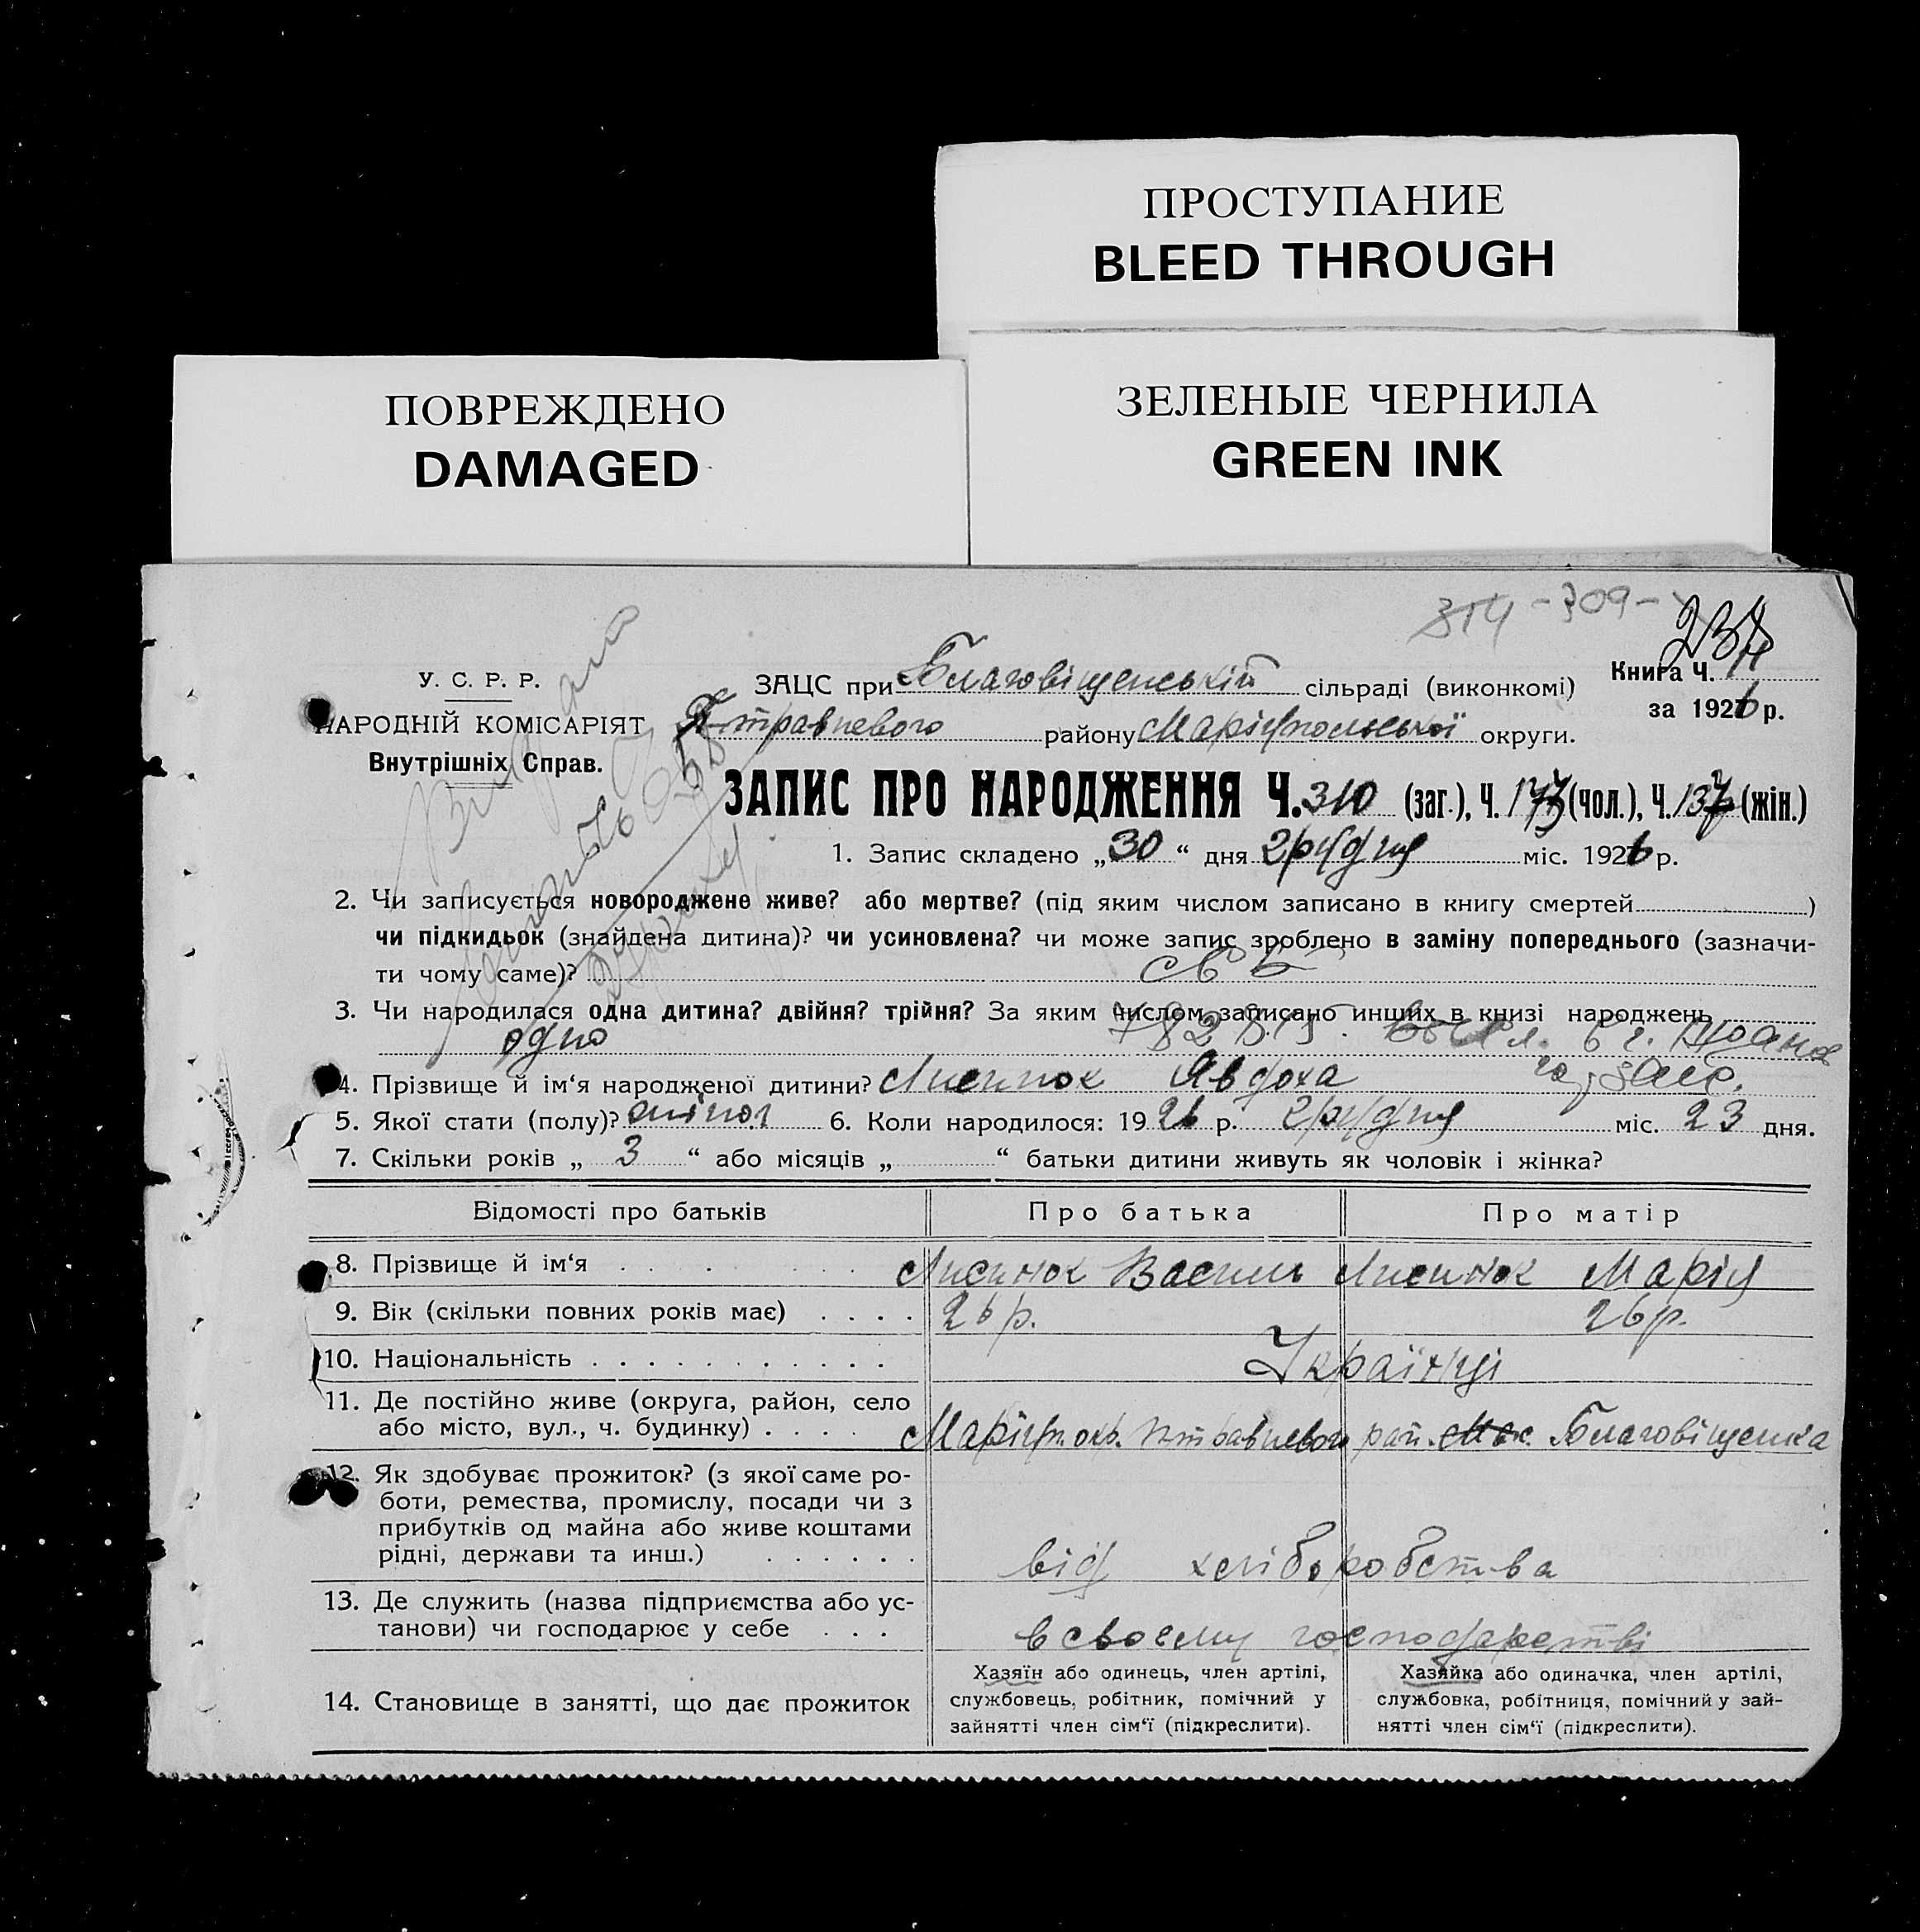 ПРОСТУПАНИЕ
BLEED THROUGH
ПОВРЕЖДЕНО
DAMAGED
ЗЕЛЕНЫЕ ЧЕРНИЛА
GREEN INK
314 - 309 -
У. С. Р. Р.
НАРОДНІЙ КОМІСАРІЯТ
Внутрішніх Справ.
ЗАЦС при Благовіщенській сільраді (виконкомі)
Книга Ч.
травневого району Маріупольської округи.
за 1926 р.
ЗАПИС ПРО НАРОДЖЕННЯ Ч. 310 (заг.), Ч. 173 (чол.), Ч. 137 (жін.)
1. Запис складено „30“ дня грудня міс. 1926 р.
2. Чи записується новороджене живе? або мертве? (під яким числом записано в книгу смертей )
чи підкидьок (знайдена дитина)? чи усиновлена? чи може запис зроблено в заміну попереднього (зазначи-
ти чому саме)?
3. Чи народилася одна дитина? двійня? трійня? За яким числом записано инших в книзі народжень
одно
4. Прізвище й ім‘я народженої дитини? Лисинок Явдоха
5. Якої стати (полу)? жіночої 6. Коли народилося: 1926 р. грудня міс. 23 дня.
7. Скільки років „ 3 “ або місяців „ “ батьки дитини живуть як чоловік і жінка?
Відомості про батьків Про батька Про матір
8. Прізвище й ім‘я Лисинок Василь Лисинок Марія
9. Вік (скільки повних років має) 26 р. 26 р.
10. Національність Українці
11. Де постійно живе (округа, район, село
або місто, вул., ч. будинку) Маріуп. окр. травневого рай. с. Благовіщенка
12. Як здобуває прожиток? (з якої саме ро-
боти, ремества, промислу, посади чи з
прибутків од майна або живе коштами
рідні, держави та инш.) від хліборобства
13. Де служить (назва підприємства або ус-
танови) чи господарює у себе в своєму господарстві
14. Становище в занятті, що дає прожиток
Хазяїн або одинець, член артілі,
службовець, робітник, помічний у
зайнятті член сім‘ї (підкреслити).
Хазяйка або одиначка, член артілі,
службовка, робітниця, помічний у зай-
нятті член сім‘ї (підкреслити).